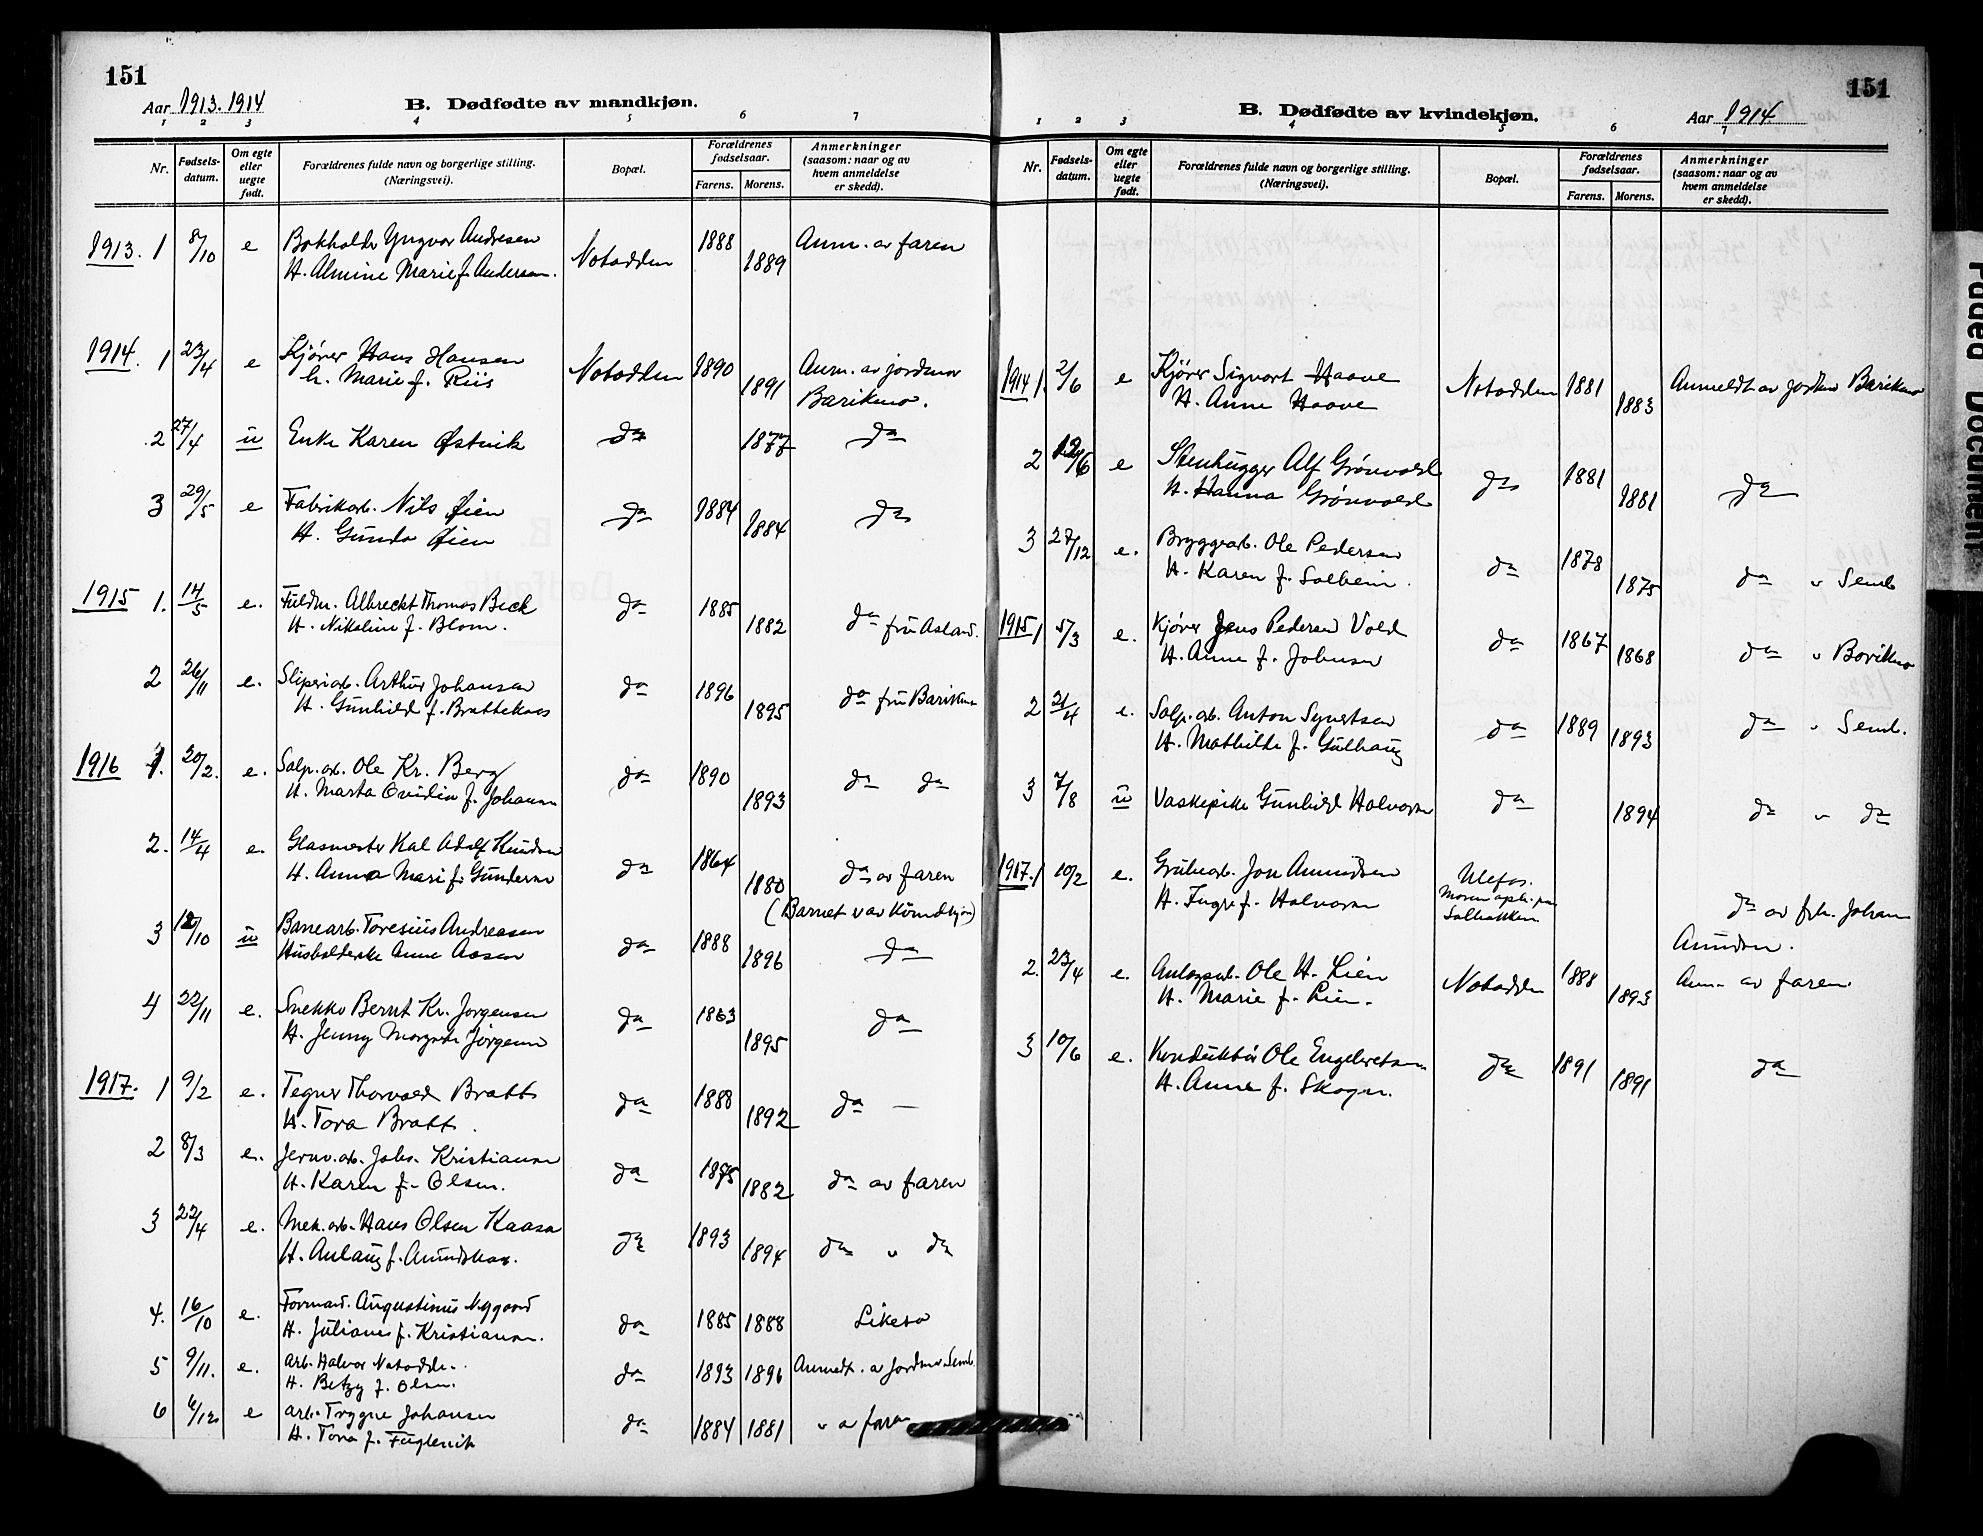 151
Aar 1913. 1914
B. Dødfødte av mandkjøn.
1 2 3 4 5 6 7
Nr.
Fødsels-datum.
Om egte eller uegte født.
Forældrenes fulde navn og borgerlige stilling. (Næringsvei).
Bopæl.
Forældrenes fødselsaar.
Farens. Morens.
Anmerkninger (saasom: naar og av hvem anmeldelse er skedd).
1913. 1 8/10 e Bokholder Yngvar Andresen Notodden 1888 Anm. av faren
H. Almine Marie f. Andersen. 1889
1914. 1 23/4 e Kjører Hans Hansen Notodden 1890 Anm. av jordmor
h. Marie f. Riis 1891 Barikmo.
2 27/4 u Enke Karen Østvik do 1877 do
3 29/5 e Fabrikarb. Nils Øien do 1884 do
H. Gunda Øien 1884
1915 1. 14/5 e. Fuldm. Albreckt Thomas Beck do 1885
H. Nikoline f. Blom. 1882 do fru Asland.
2 26/11 e. Sliperiarb. Arthur Johansen do 1896 do fru Barikmo
H. Gunhild f. Brattekaas 1895
1916 1. 20/2. e. Salp. arb. Ole Kr. Berg do 1890 do do
H. Marta Ovidia f. Johansen 1893
2. 14/4 e. Glasmester Kal Adolf Knudsen do 1864
H. Anna Mari f. Gundersen 1880 do av faren
(Barnet v av Kvindkjøn)
3 12/10 u Banearb. Toresius Andreasen do 1888
Husholderske Anne Aasen 1896 do
4 22/11 e. Snekker Bernt Kr. Jorgensen do 1863 do
H. Jenny Margrete Jörgensen 1895
1917. 1 9/2 e. Tegner Thorvald Bratt do 1888 do —
H. Tora Bratt. 1892
2 8/3 e. Jernv. arb. Johs. Kristiansen do 1875
H. Karen f. Olsen. 1882 do av faren
3 22/4 e. Mek. arb. Hans Olsen Kaasa do 1893
H. Aslaug f. Amundskaas. 1894 do " do
4. 16/10 e. Formand. Augustinus Nygaard do 1885 1888 Likeså
H. Juliane f. Kristiansen.
5 9/11. e. Arb. Halvor Notodden. do 1893 1896 Anmeldt. av jordmor Semb.
H. Betzy f. Olsen.
6 6/12. e Arb. Trygve Johansen do 1884 1881 " av faren
H. Tora f. Fuglevik
151
B. Dødfødte av kvindekjøn.
Aar 1914
1 2 3 4 5 6 7
Nr.
Fødsels-datum.
Om egte eller uegte født.
Forældrenes fulde navn og borgerlige stilling. (Næringsvei).
Bopæl.
Forældrenes fødselsaar.
Farens. Morens.
Anmerkninger (saasom: naar og av hvem anmeldelse er skedd).
1914 1. 2/6 e Kjører Sigvart Haave Notodden 1881 Anmeldt av jordm Barikmo
H. Anne Haave 1883
2 12/6 e Stenhugger Alf Grönvold do 1881
H. Hanna Grönvold 1881 do
3 27/12 e. Bryggearb. Ole Pedersen do 1878
H. Karen f. Solheim. 1875 do " Semb
1915 1 5/3 e. Kjører Jens Pedersen Vold do 1867
H. Anne f. Johnsen 1868 do " Barikmo
2 21/4 e. Salp. arb. Anton Syvertsen do 1889 1893 do " Semb.
H. Mathilde f. Gulhaug
3 7/8 u Vaskepike Gunhild Halvorsen do 1894 do " do
1917. 1 10/2 e. Grubearb. Jon Amundsen Ulefos.
H. Inger f. Halvorsen Solbakken do av frk. Johan
Amundsen.
2. 23/4 e. Anlagsarb. Ole H. Lien Notodden 1888 Anm. av faren
H. Marie f. Lien. 1893
3 10/6 e. Konduktør Ole Engebretsen do 1891 1891 do
H. Anne f. Skogen.
Faded Document